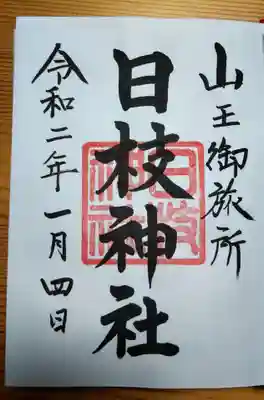 山王御旅所
日枝神社
令和二年一月四日
日枝
神社